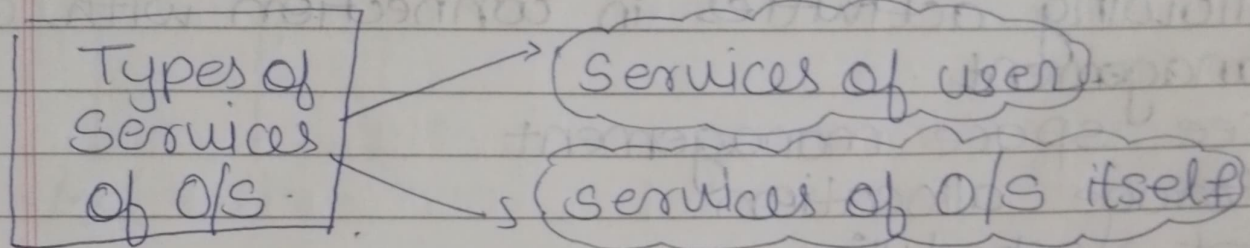 Types of
Services
of O/S.
Services of user
Services of O/S itself